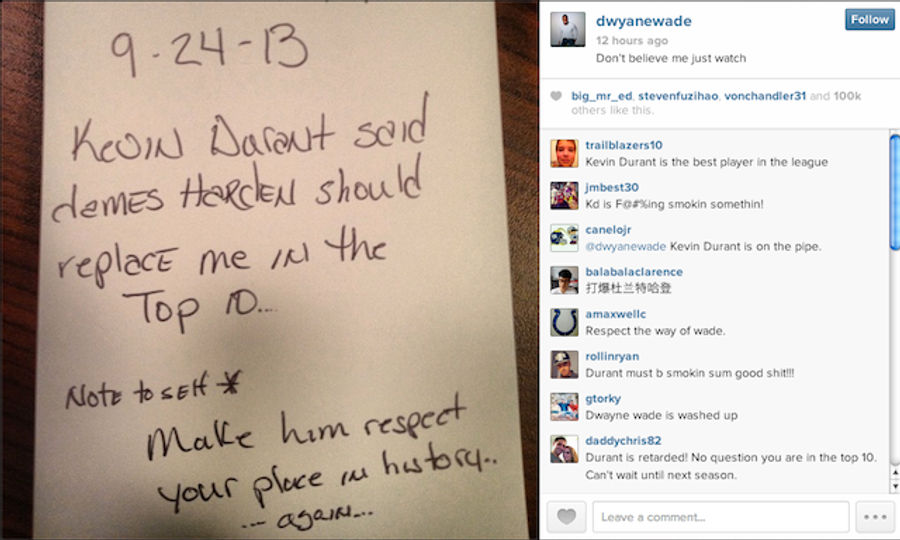 9-24-13
Kevin Durant said
James Harden should
replace me in the
Top 10...
Note to self *
Make him respect
your place in history..
... again...
dwyanewade
Follow
12 hours ago
Don't believe me just watch
big_mr_ed, stevenfuzihao, vonchandler31 and 100k
others like this.
trailblazers10
Kevin Durant is the best player in the league
jmbest30
Kd is F@#%ing smokin somethin!
canelojr
@dwyanewade Kevin Durant is on the pipe.
balabalaclarence
打爆杜兰特哈登
amaxwellc
Respect the way of wade.
rollinryan
Durant must b smokin sum good shit!!!
gtorky
Dwayne wade is washed up
daddychris82
Durant is retarded! No question you are in the top 10.
Can't wait until next season.
Leave a comment...